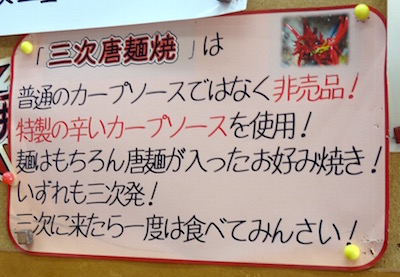 「三次唐麺焼」は
普通のカープソースではなく非売品！
特製の辛いカープソースを使用！
麺はもちろん唐麺が入ったお好み焼き！
いずれも三次発！
三次に来たら一度は食べてみんさい！